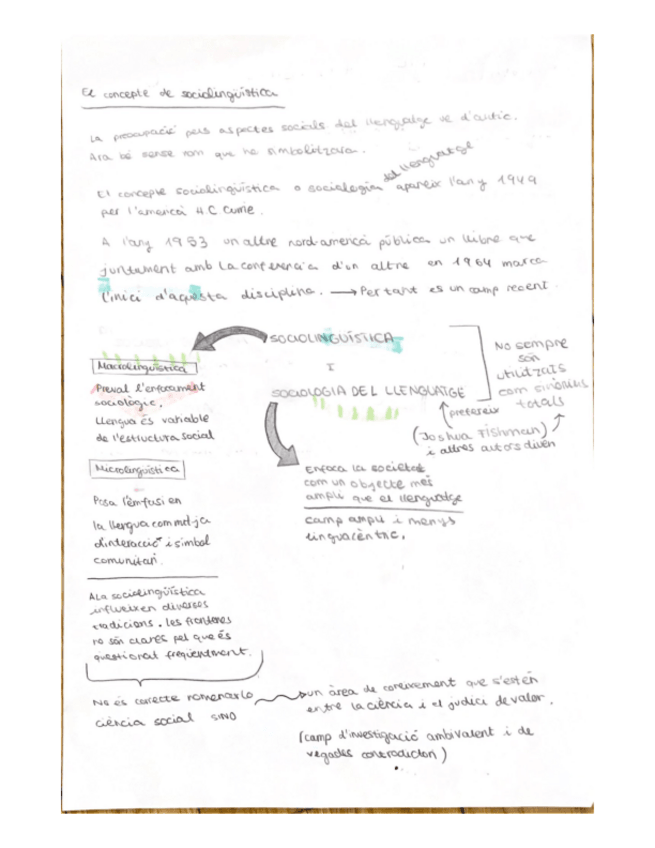 El concepte de sociolingüística
La preocupació pels aspectes socials del llenguatge ve d'antic.
Ara bé sense nom que ho simbolitzara.
El concepte sociolingüística o sociologia del llenguatge apareix l'any 1949
per l'americà H.C Currie.
A l'any 1953 un altre nord-americà pública un llibre que
juntament amb La conferència d'un altre en 1964 marca
l'inici d'aquesta disciplina. → Per tant es un camp recent.
SOCIOLINGUÍSTICA
I
SOCIOLOGIA DEL LLENGUATGE
No sempre
són
utilitzats
com sinònims
totals
prefereix
(Joshua Fishman)
i altres autors diuen
Macrolingüística
Preval l'enfocament
sociològic.
Llengua és variable
de l'estructura social
Microlingüística
Posa l'èmfasi en
la llengua com mitja
d'interacció i símbol
comunitari.
Enfoca la societat
com un objecte més
ampli que el llenguatge
camp ampli i menys
linguacèntric.
A La sociolingüística
influeixen diverses
tradicions. les fronteres
no són clares pel que és
questionat freqüentment.
No és correcte nomenarlo
ciència social SINO
un àrea de coneixement que s'estén
entre la ciència i el judici de valor.
(camp d'investigació ambivalent i de
vegades contradictori)